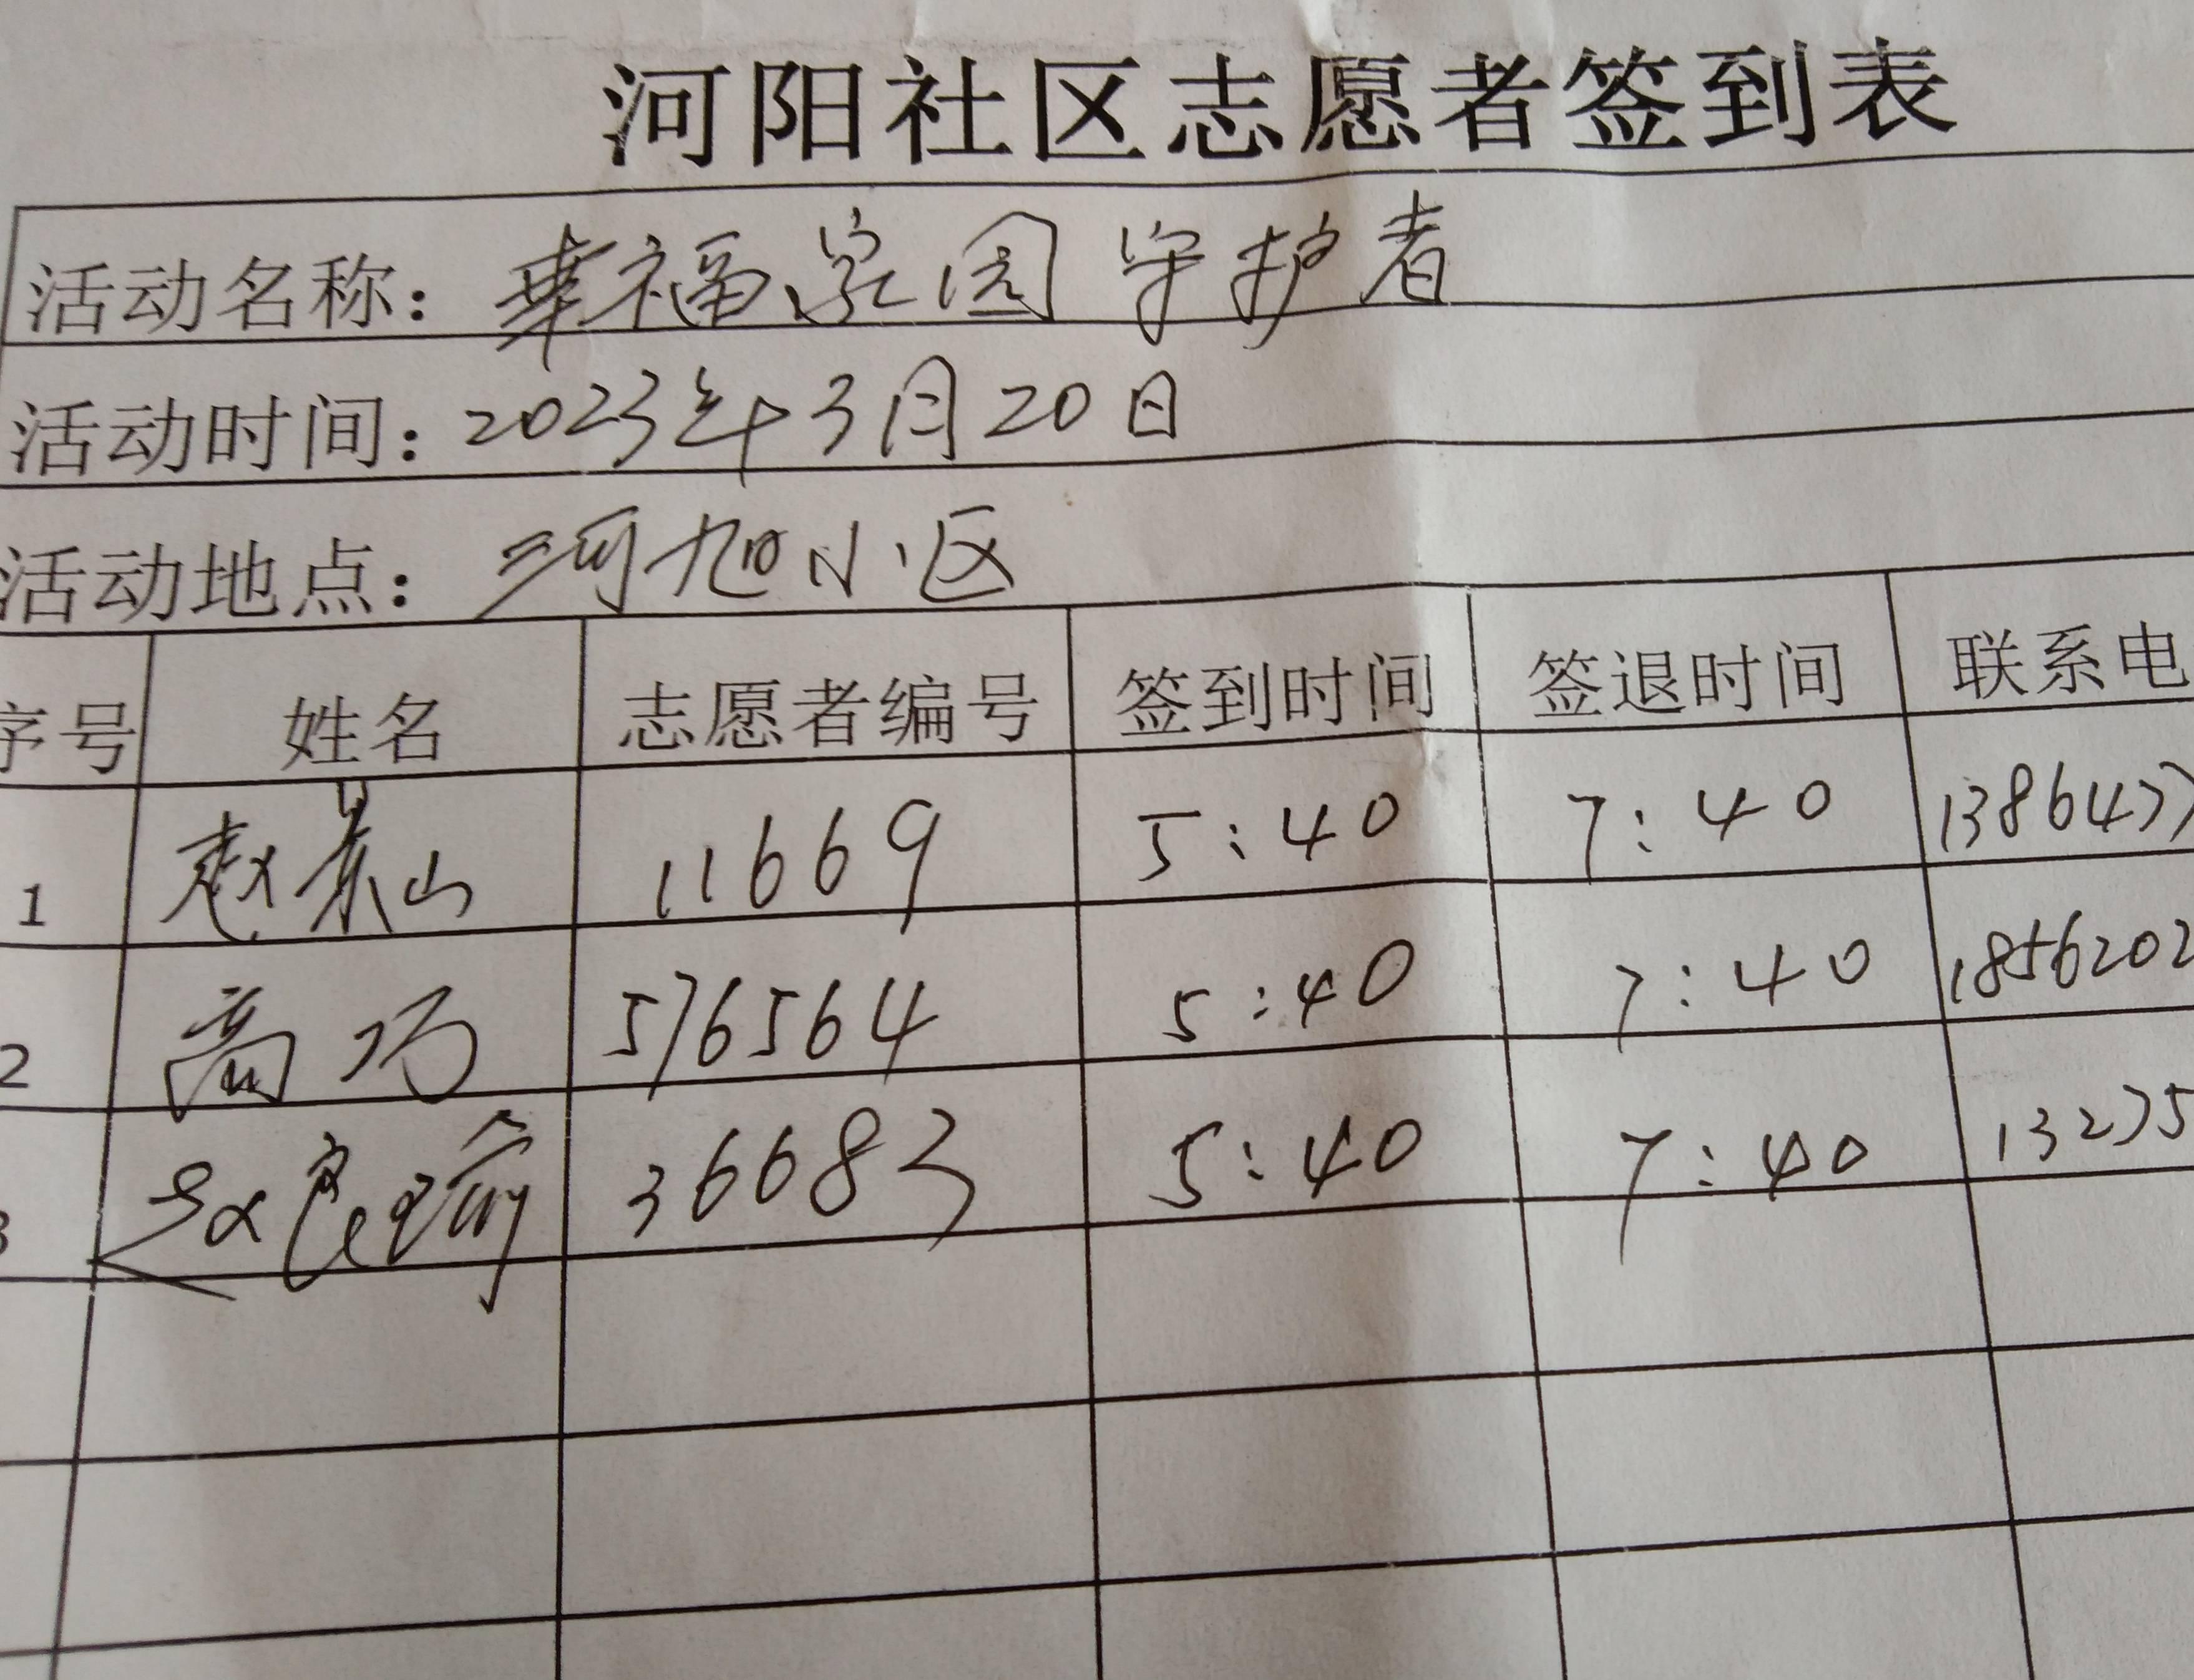 河阳社区志愿者签到表
活动名称：幸福家园守护者
活动时间：2023年3月20日
活动地点：河旭小区
序号 姓名 志愿者编号 签到时间 签退时间 联系电
1 赵景山 11669 5:40 7:40 1386477
2 高巧 576564 5:40 7:40 1856202
3 36683 5:40 7:40 13275